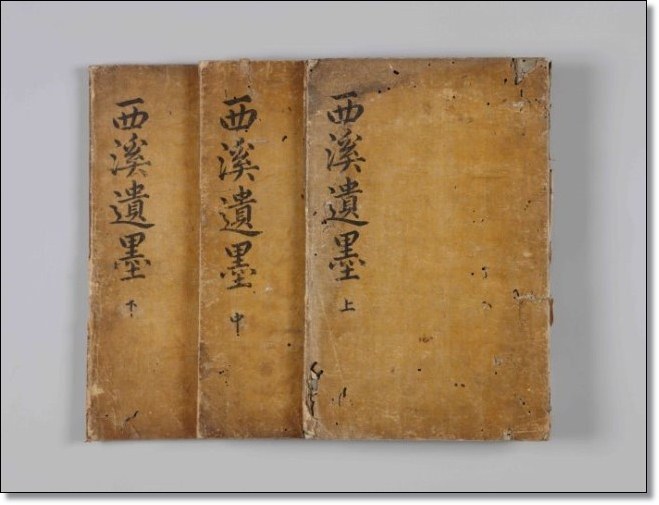 西溪遺墨 上
西溪遺墨 中
西溪遺墨 下